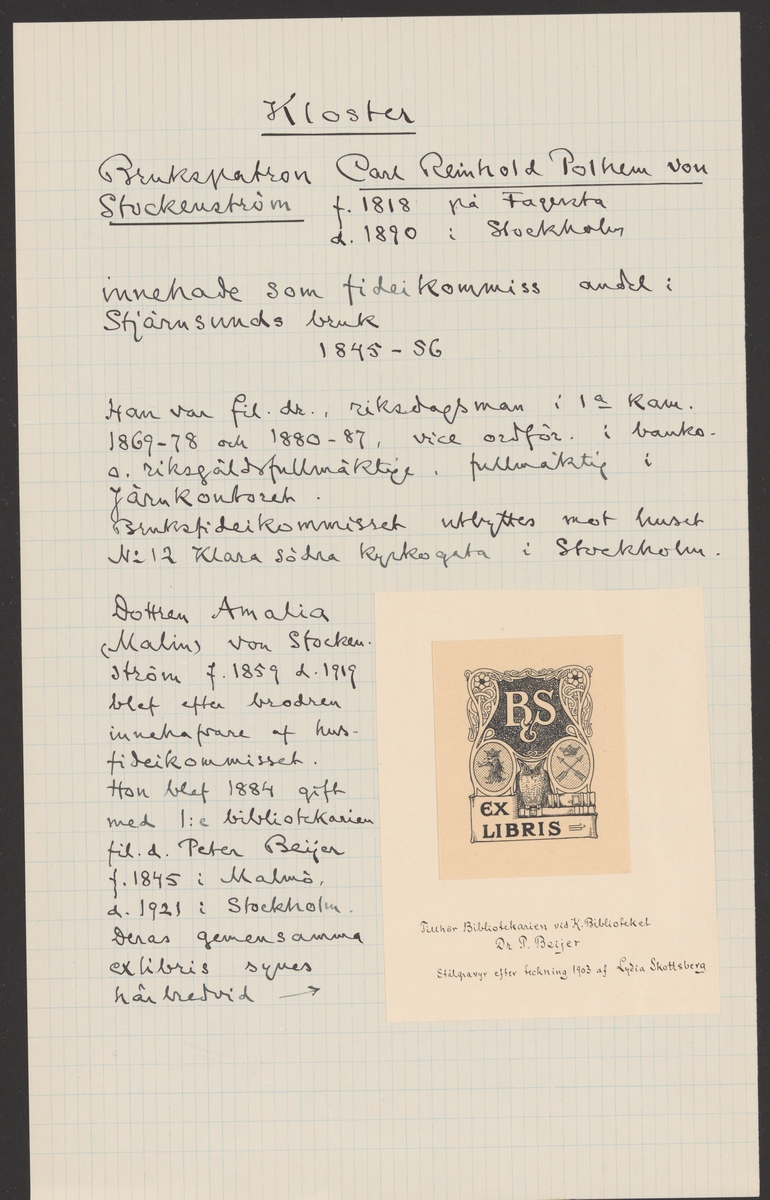 Kloster
Brukspatron Carl Reinhold Polhem von
Stockenström f. 1818 på Fagersta
d. 1890 i Stockholm
innehade som fideikommiss andel i
Stjärnsunds bruk
1845-56
Han var fil. dr., riksdagsman i 1a Kam.
1869-78 och 1880-87, vice ordför. i banko-
o. riksgäldsfullmäktige, fullmäktig i
Järnkontoret.
Bruksfideikommisset utbyttes mot huset
No 12 Klara södra kyrkogata i Stockholm.
Dottren Amalia
(Malin) von Stocken-
ström f. 1859 d. 1919
blef efter brodren
innehafvare af hus-
fideikommisset.
Hon blef 1884 gift
med 1:e bibliotekarien
fil. d. Peter Beijer
f. 1845 i Malmö,
d. 1921 i Stockholm.
Deras gemensamma
exlibris synes
här bredvid →
B&S
EX
LIBRIS
Tillhör Bibliotekarien vid K. Biblioteket
Dr P. Beijer
Stålgravyr efter teckning 1903 af Lydia Skottsberg